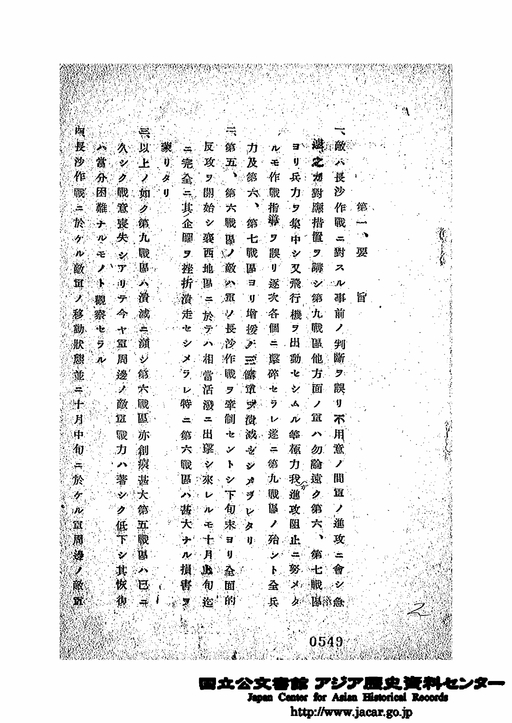 第一、要旨
一、敵ハ長沙作戰ニ對スル事前ノ判斷ヲ誤リ不用意ノ間軍ノ進攻ニ會シ急
遽之カ對應措置ヲ講シ第九戰區他方面ノ軍ハ勿論遠ク第六、第七戰區
ヨリ兵力ヲ集中シ又飛行機ヲ出動セシムル等極力我カ進攻阻止ニ努メタ
ルモ作戰指導ヲ誤リ逐次各個ニ擊碎セラレ遂ニ第九戰區ノ殆ント全兵
力及第六、第七戰區ヨリ增援ノ三箇軍ヲ潰滅セシメラレタリ
二、第五、第六戰區ノ敵ハ軍ノ長沙作戰ヲ牽制セントシ下旬末ヨリ全面的
反攻ヲ開始シ襄西地區ニ於テハ相當活潑ニ出擊シ來レルモ十月上旬迄
ニ完全ニ其企圖ヲ挫折潰走セシメラレ特ニ第六戰區ハ甚大ナル損害ヲ
蒙リタリ
三、以上ノ如ク第九戰區ハ潰滅ニ瀕シ第六戰區亦創痍甚大第五戰區ハ已ニ
久シク戰意喪失シアリテ今ヤ軍周邊ノ敵軍戰力ハ著シク低下シ其恢復
ハ當分困難ナルモノト觀察セラル
四、長沙作戰ニ於ケル敵軍ノ移動狀態並ニ十月中旬ニ於ケル軍周邊ノ敵軍
2
0549
国立公文書館 アジア歴史資料センター
Japan Center for Asian Historical Records
http://www.jacar.go.jp